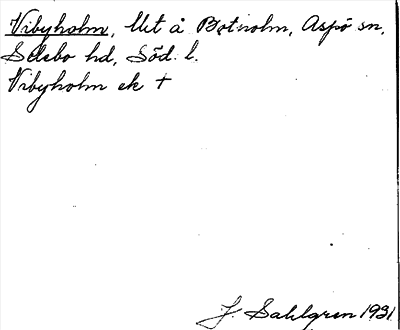 Vibyholm, lht å Botnolm, Aspö sn,
Selebo hd, Söd. l.
Vibyholm ek †
J. Sahlgren 1931